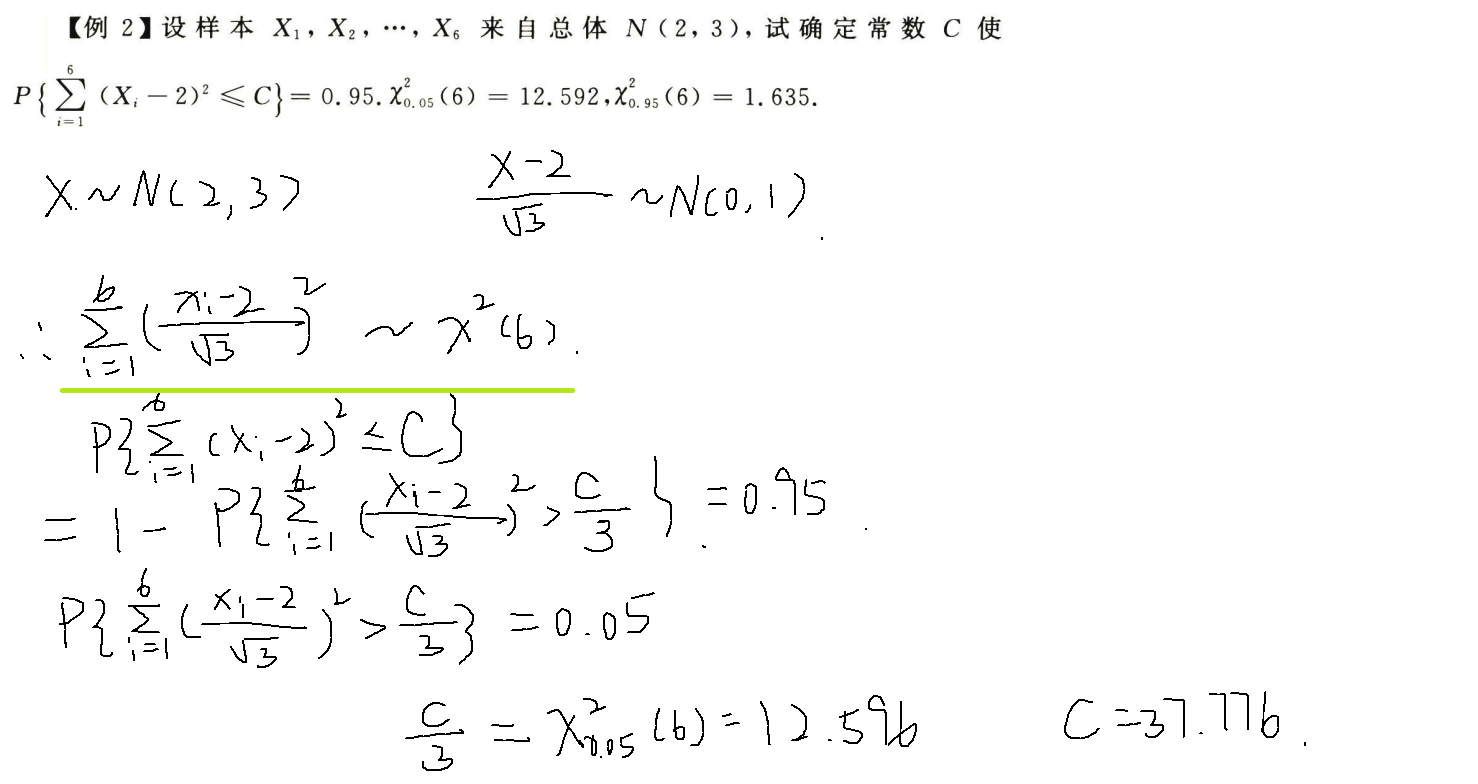 【例 2】设样本 X₁, X₂, ⋯, X₆ 来自总体 N(2, 3), 试确定常数 C 使
P{∑_{i=1}^{6} (Xᵢ − 2)² ⩽ C} = 0.95. χ²_{0.05}(6) = 12.592, χ²_{0.95}(6) = 1.635.
X ~ N(2, 3) (X−2)/√3 ~ N(0, 1).
∴ ∑_{i=1}^{6} ((xᵢ−2)/√3)² ~ χ²(6).
P{∑_{i=1}^{6} (xᵢ−2)² ≤ C}
= 1 − P{∑_{i=1}^{6} ((xᵢ−2)/√3)² > C/3} = 0.95.
P{∑_{i=1}^{6} ((xᵢ−2)/√3)² > C/3} = 0.05
C/3 = χ²_{0.05}(6) = 12.596 C = 37.776.